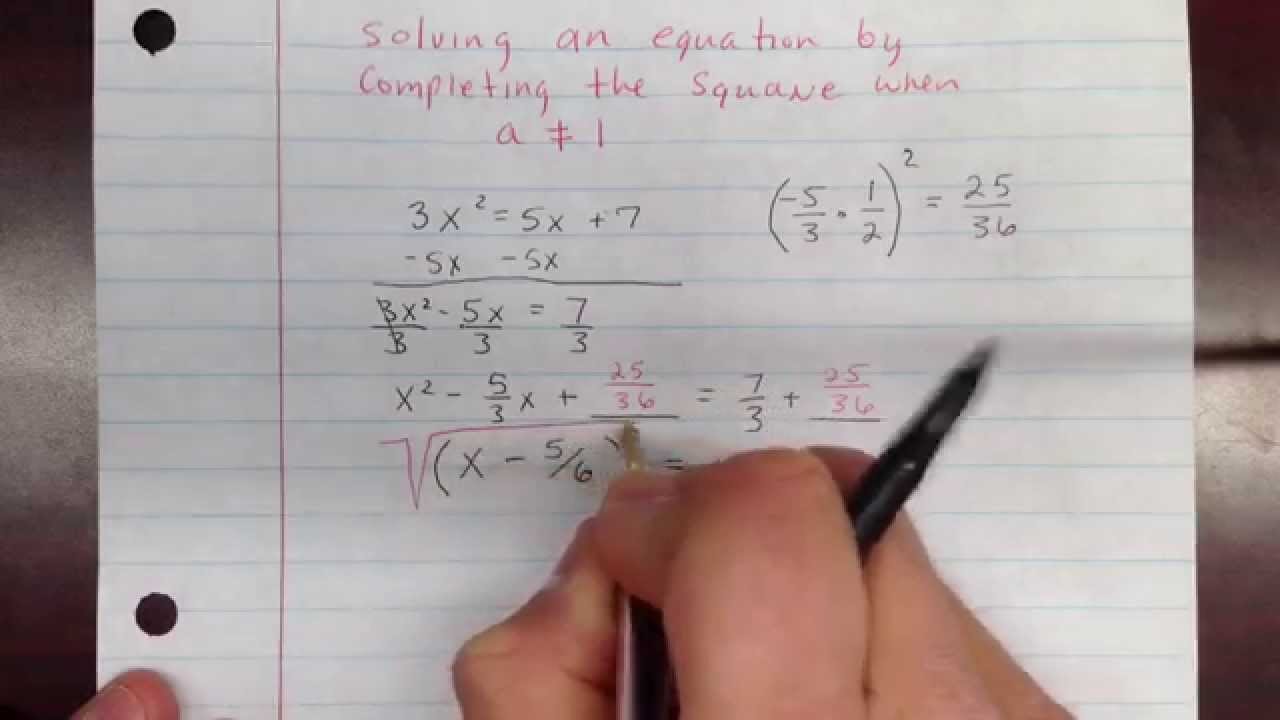 Solving an equation by
Completing the Square when
a ≠ 1
3x² = 5x + 7
-5x -5x
3x²/3 - 5x/3 = 7/3
x² - 5/3 x + 25/36 = 7/3 + 25/36
√(x - 5/6) =
(-5/3 · 1/2)² = 25/36